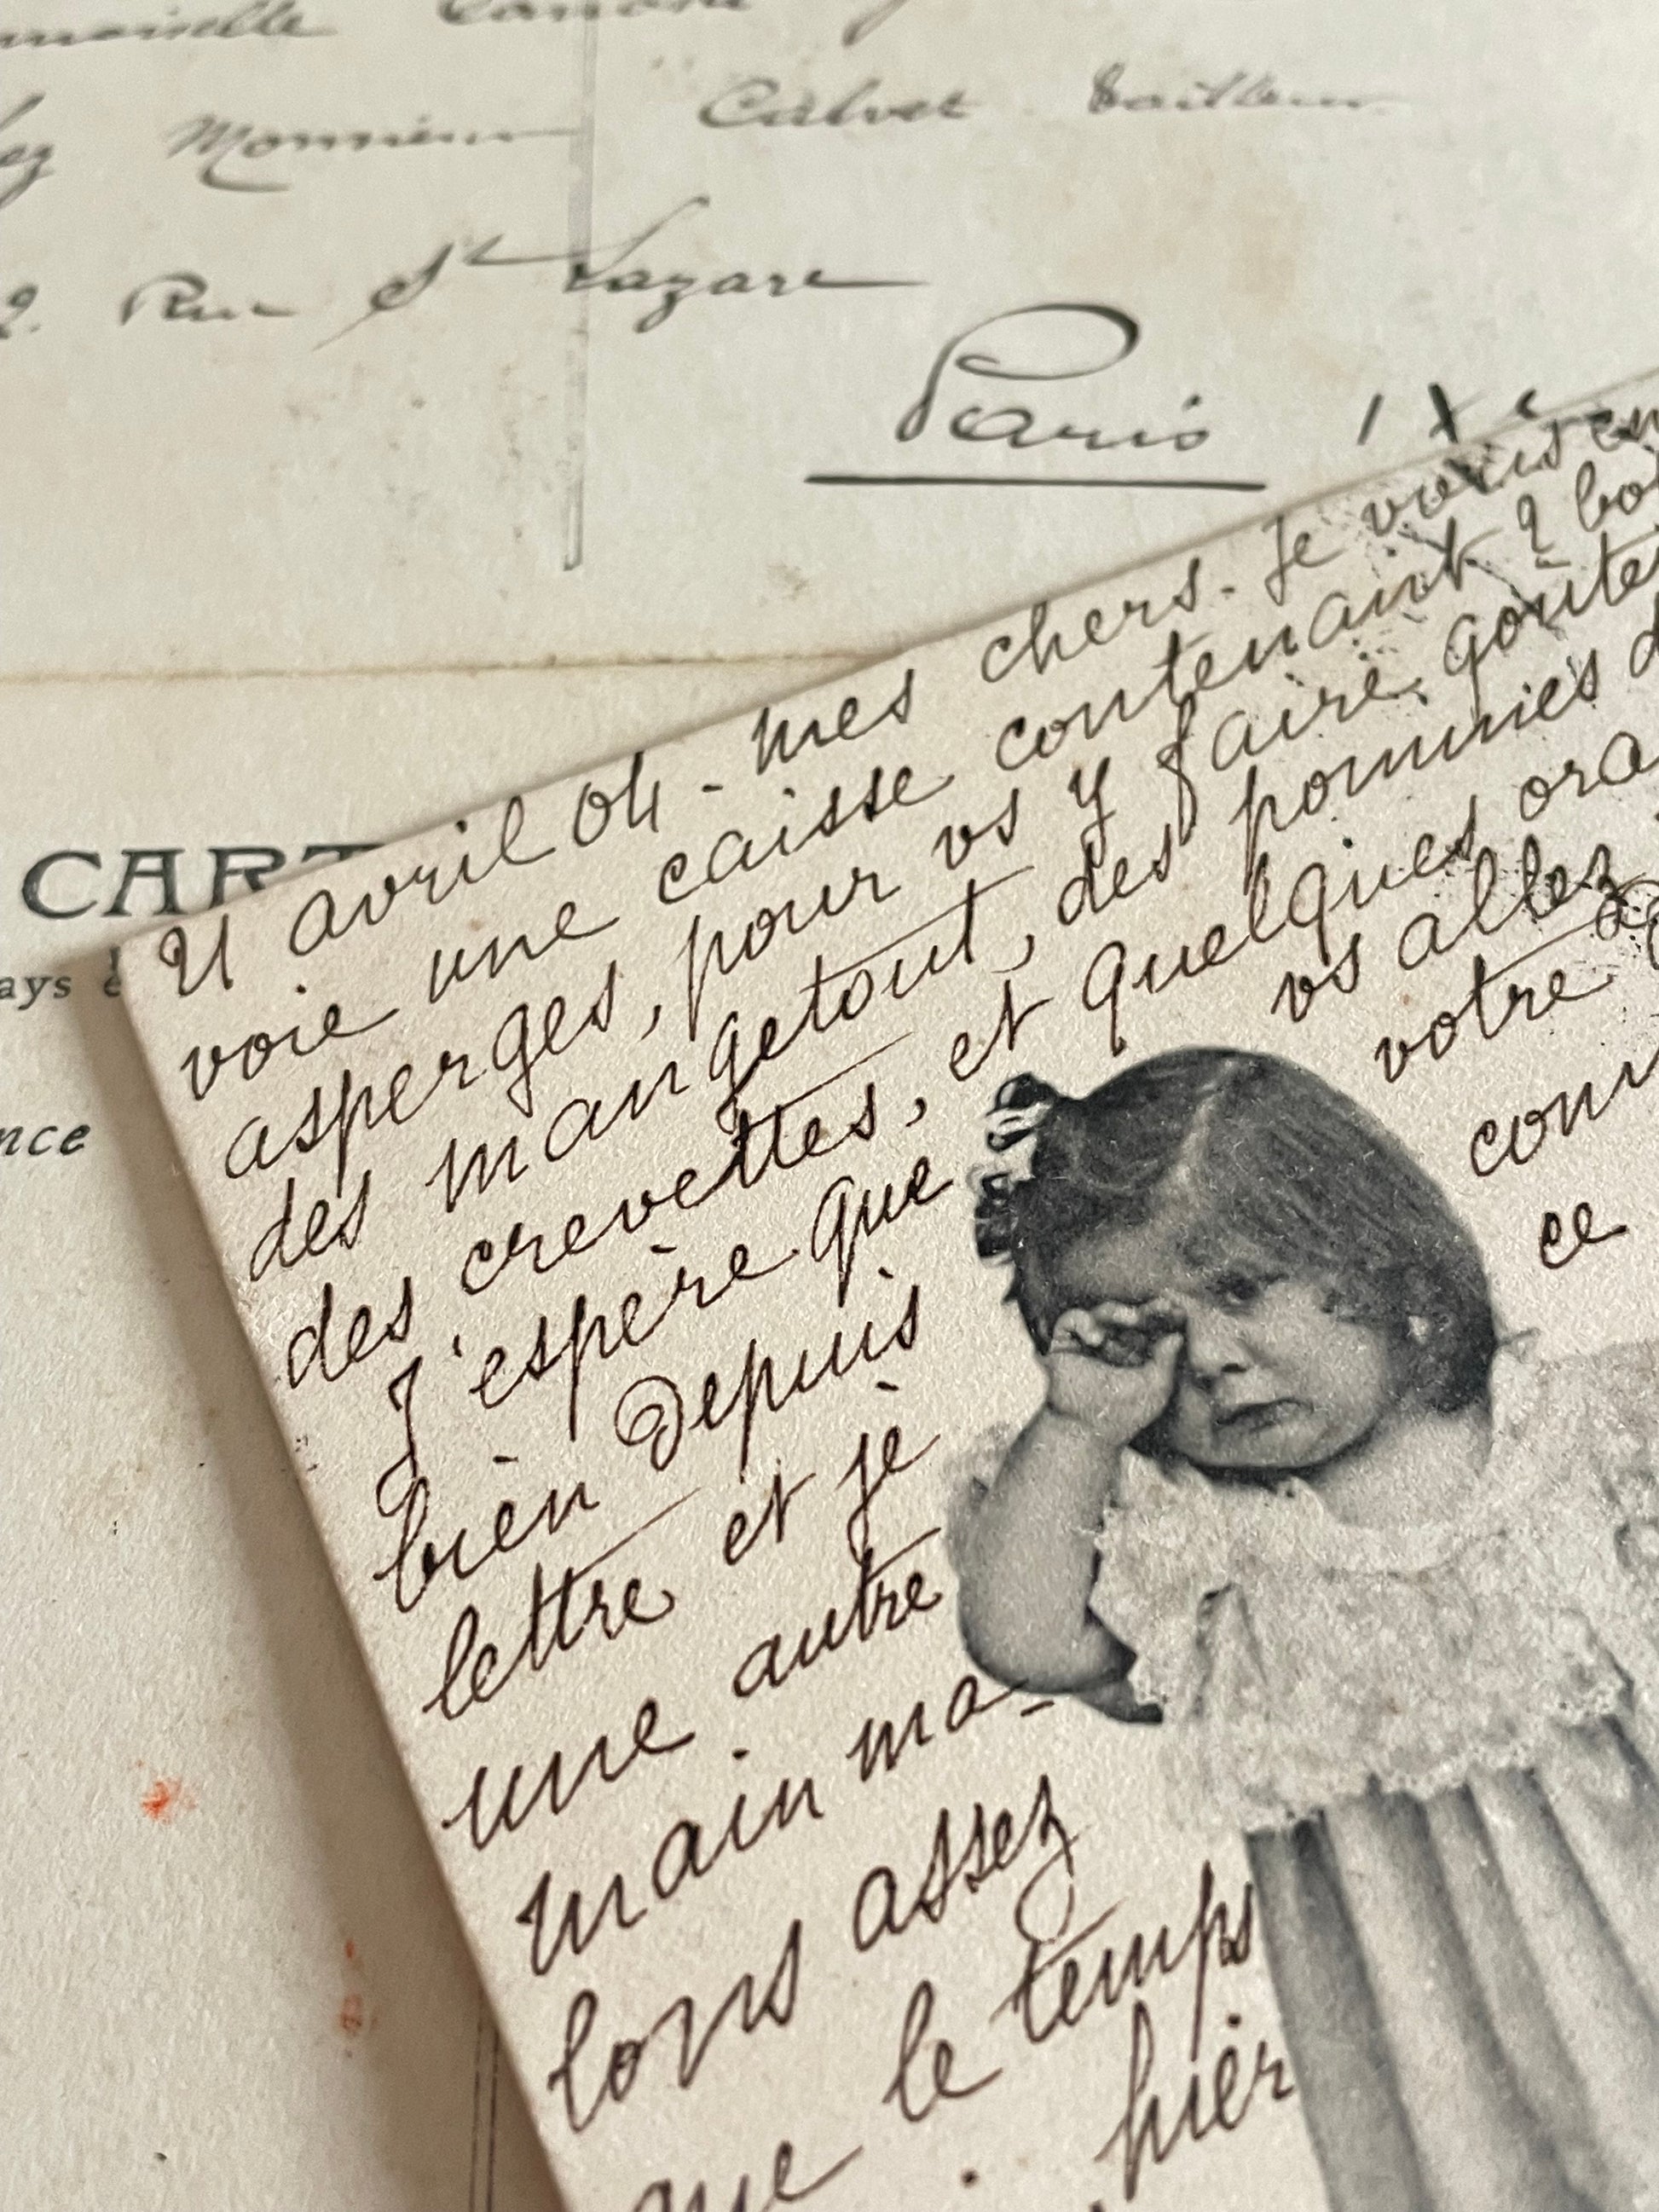 Monsieur Calvet tailleur
2. Rue St Lazare
Paris IXe
CART
ays
nce
21 avril 04 - mes chers. Je vous en
voie une caisse contenant 2 bo
asperges, pour vs y faire goûter
des mangetout, des pommes d
des crevettes, et quelques ora
J'espère que vs allez
bien Depuis votre
lettre et je
une autre
com
ce
main ma-
lons assez
que le temps
hier